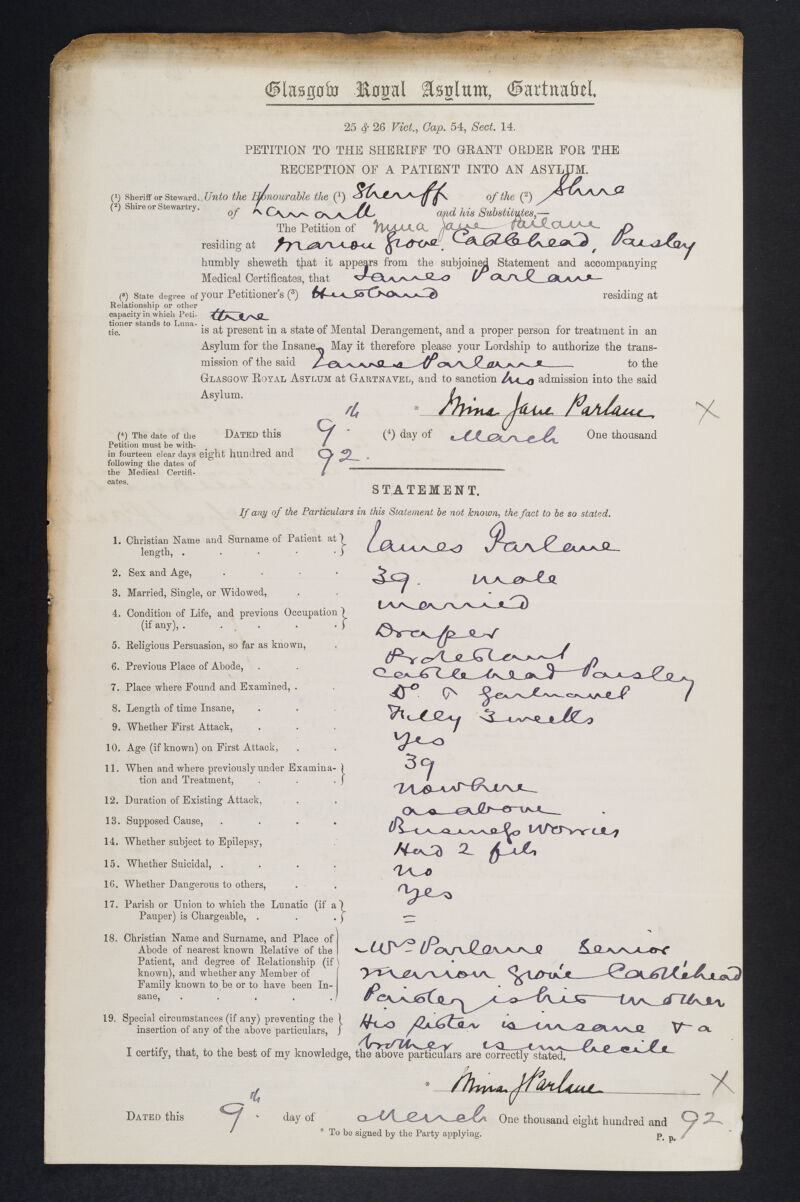 Glasgow Royal Asylum, Gartnabel.
25 & 26 Vict., Cap. 54, Sect. 14.
PETITION TO THE SHERIFF TO GRANT ORDER FOR THE
RECEPTION OF A PATIENT INTO AN ASYLUM.
(1) Sheriff or Steward. Unto the Honourable the (1) Sheriff of the (2) Shire
(2) Shire or Stewartry. of Lanark and his Substitutes,—
The Petition of Mina Jane Parlane
residing at Marion Grove, Castlehead, Paisley
humbly sheweth that it appears from the subjoined Statement and accompanying
Medical Certificates, that James Parlane
(3) State degree of Relationship or other capacity in which Petitioner stands to Lunatic.
your Petitioner's (3) Husband residing at
there
is at present in a state of Mental Derangement, and a proper person for treatment in an
Asylum for the Insane. May it therefore please your Lordship to authorize the trans-
mission of the said James Parlane to the
GLASGOW ROYAL ASYLUM at GARTNAVEL, and to sanction his admission into the said
Asylum.
* Mina Jane Parlane X
(4) The date of the Petition must be within fourteen clear days following the dates of the Medical Certificates.
DATED this 9th (4) day of March One thousand
eight hundred and 92.
STATEMENT.
If any of the Particulars in this Statement be not known, the fact to be so stated.
1. Christian Name and Surname of Patient at
length, . James Parlane
2. Sex and Age, 39. male
3. Married, Single, or Widowed, married
4. Condition of Life, and previous Occupation
(if any), . Draper
5. Religious Persuasion, so far as known, Protestant
6. Previous Place of Abode, Castlehead Paisley
7. Place where Found and Examined, . Do & Gartnavel
8. Length of time Insane, Fully 3 weeks
9. Whether First Attack, yes
10. Age (if known) on First Attack, 39
11. When and where previously under Examina-
tion and Treatment, nowhere
12. Duration of Existing Attack, as above
13. Supposed Cause, Business worries
14. Whether subject to Epilepsy, Had 2 fits
15. Whether Suicidal, . no
16. Whether Dangerous to others, yes
17. Parish or Union to which the Lunatic (if a
Pauper) is Chargeable, . =
18. Christian Name and Surname, and Place of
Abode of nearest known Relative of the
Patient, and degree of Relationship (if
known), and whether any Member of
Family known to be or to have been In-
sane,
Mrs Parlane Senior
Marion Grove Castlehead
Paisley is his mother
19. Special circumstances (if any) preventing the
insertion of any of the above particulars,
His sister is insane & a
brother is imbecile
I certify, that, to the best of my knowledge, the above particulars are correctly stated.
* Mina J Parlane X
DATED this 9th. day of March One thousand eight hundred and 92
* To be signed by the Party applying.
P. p.